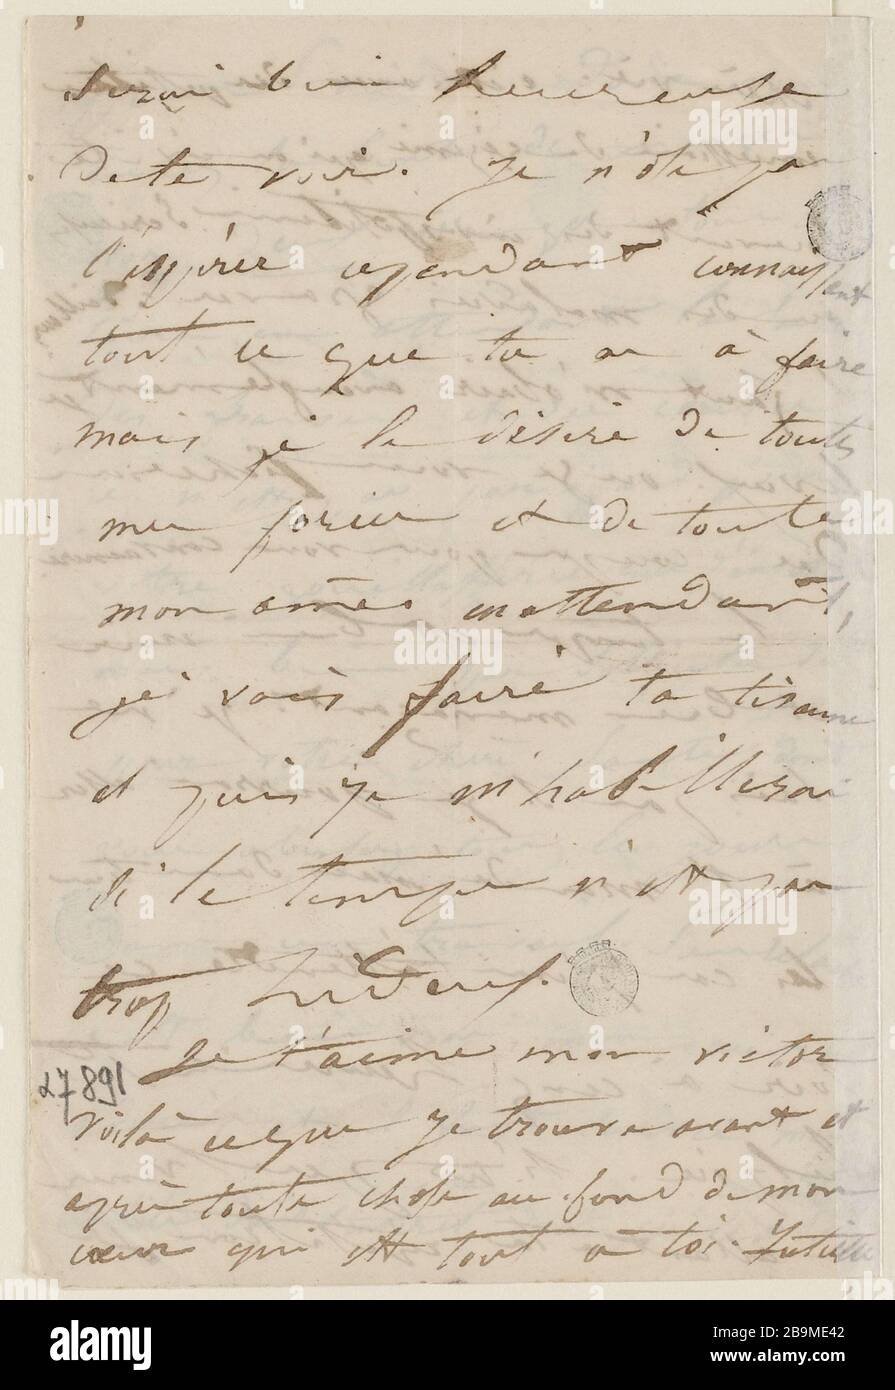 serai bien heureuse
de te voir. Je n'ose pas
l'espérer cependant connaissant
tout ce que tu as à faire
mais je le désire de toutes
mes forces et de toute
mon âme en attendant,
je vais faire ta tisanne
et puis je m'habillerai
si le temps n'est pas
trop hideux.
Je t'aime mon victor
voilà ce que je trouve avant et
après toute chose au fond de mon
cœur qui est tout à toi. Juliette
27891
alamy
Image ID: 2B9ME42
www.alamy.com